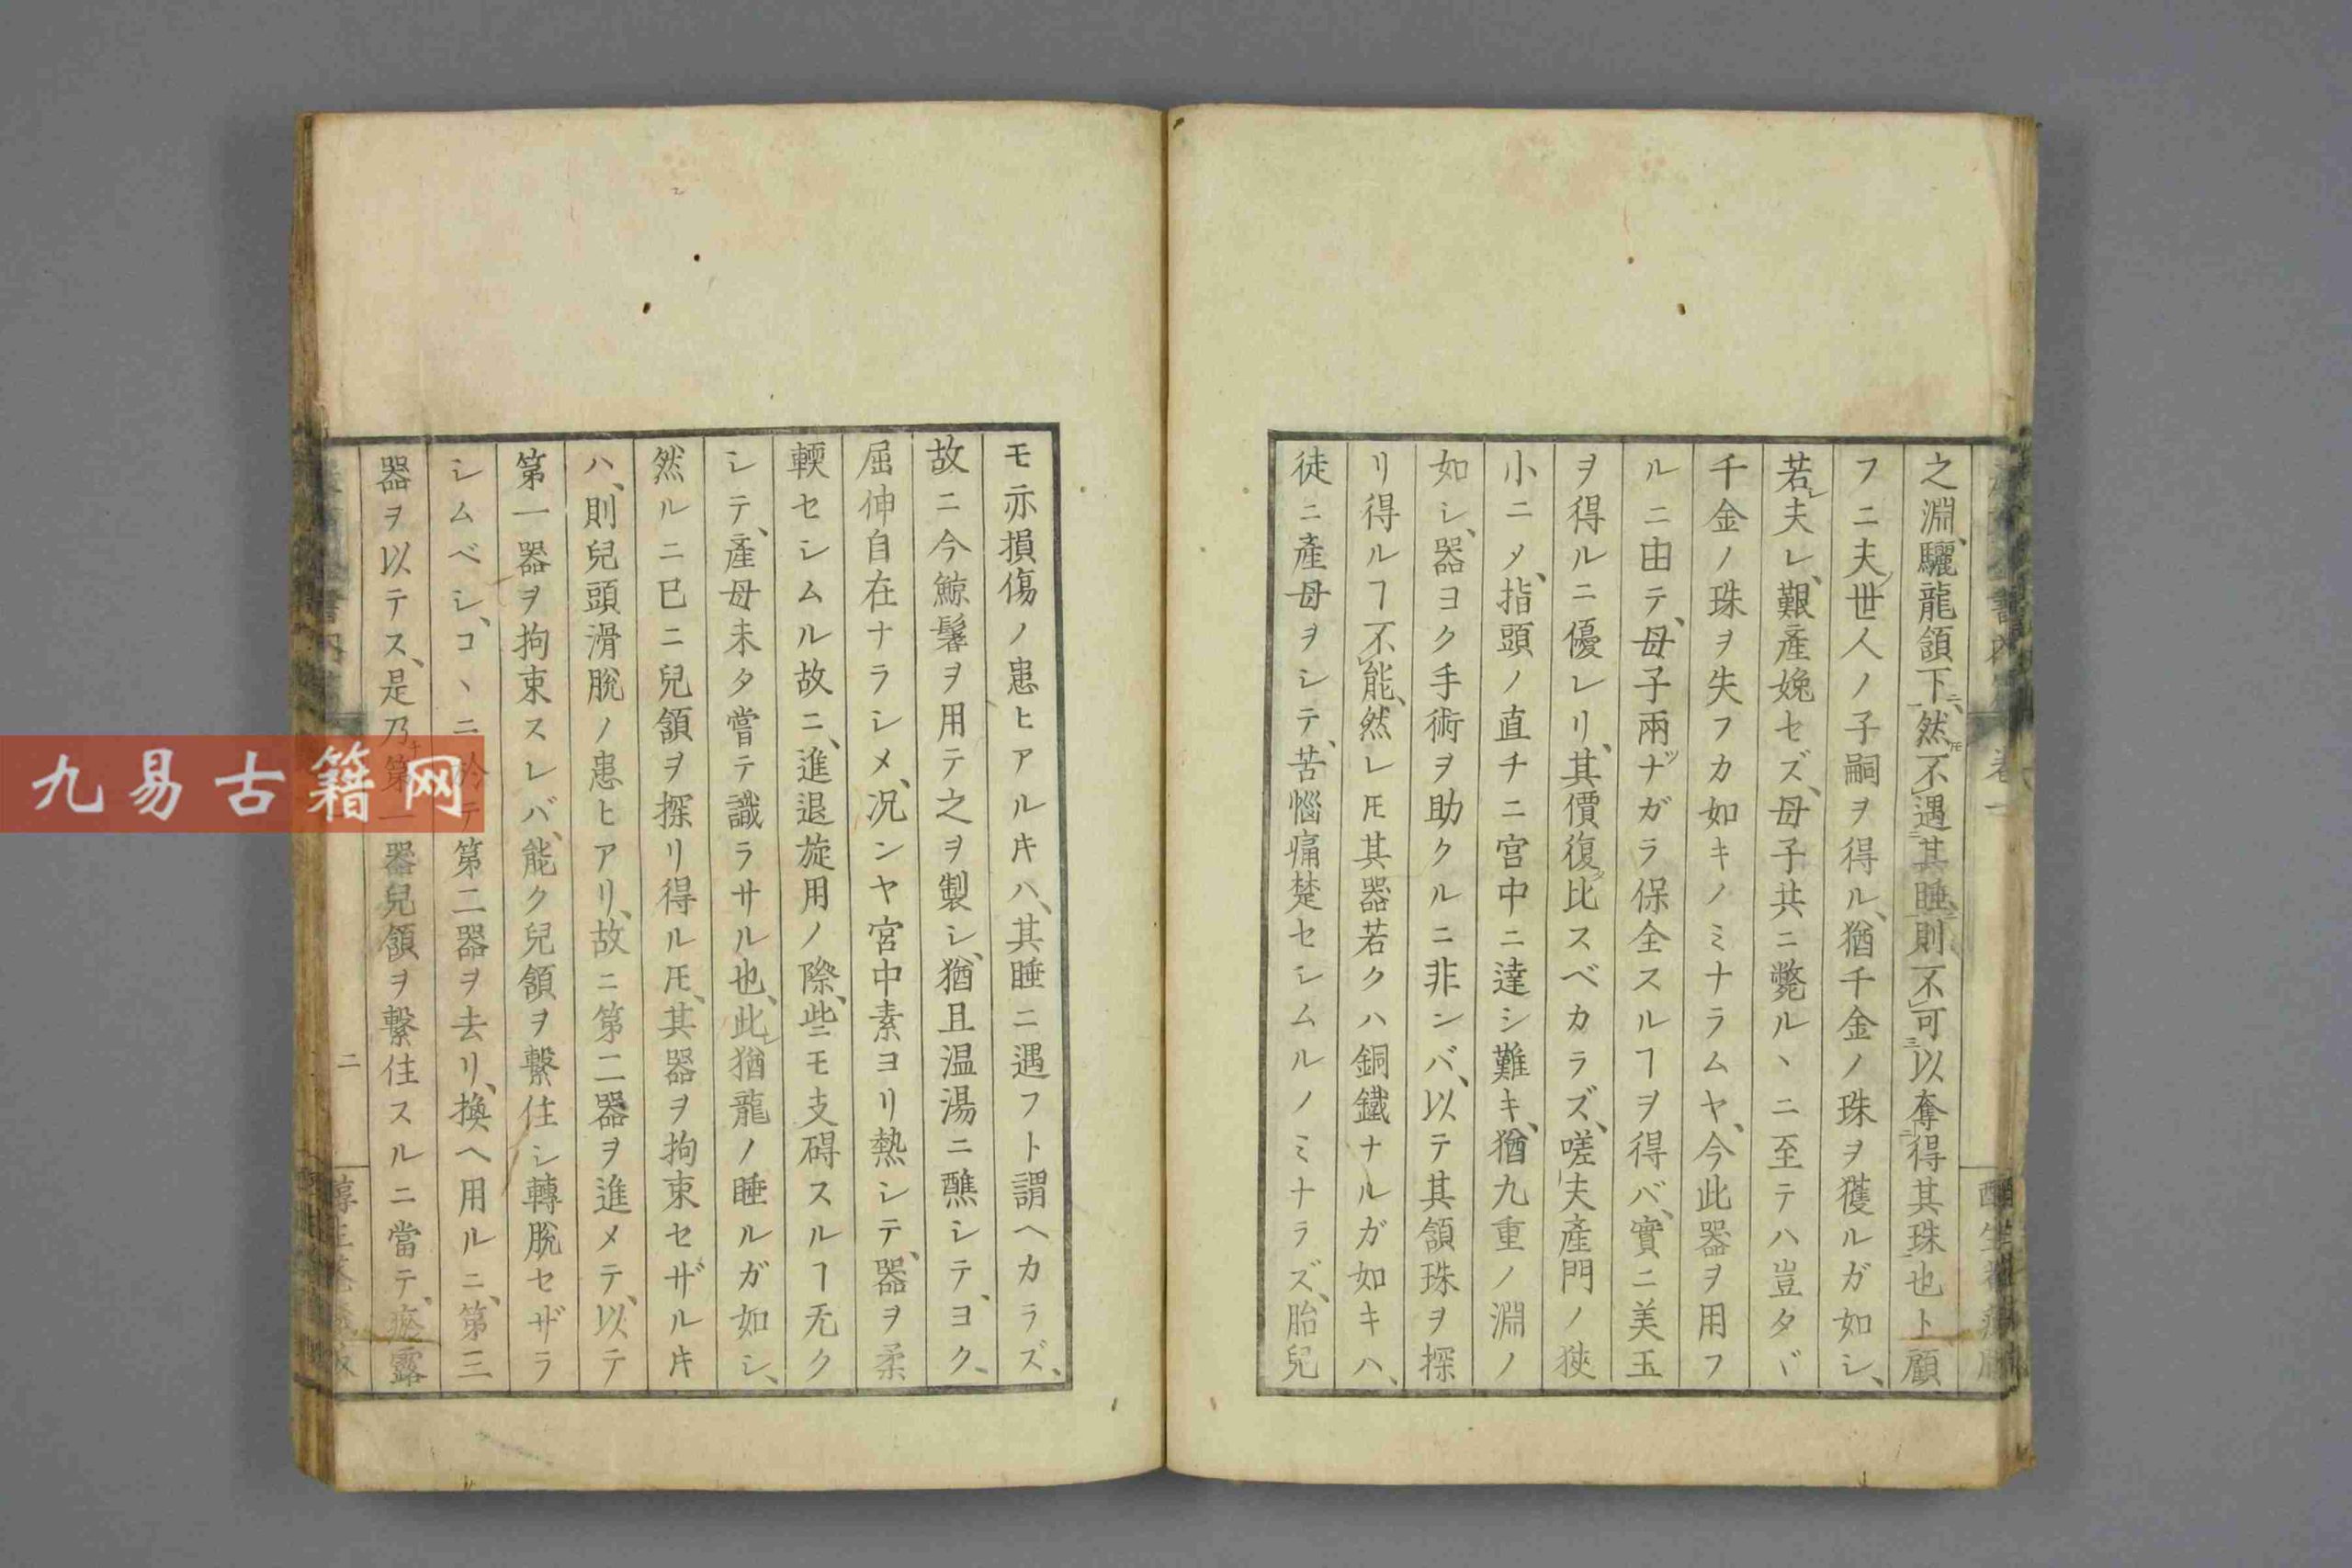 之淵、驪龍頷下、然不遇其睡、則不可以奪得其珠也ト顧
フニ夫世人ノ子嗣ヲ得ル、猶千金ノ珠ヲ獲ルガ如シ、
若夫レ、艱產娩セズ、母子共ニ斃ル丶ニ至テハ豈タヾ
千金ノ珠ヲ失フカ如キノミナラムヤ、今此器ヲ用フ
ルニ由テ、母子兩ナガラ保全スルヿヲ得バ、實ニ美玉
ヲ得ルニ優レリ、其價復比スベカラズ、嗟夫產門ノ狹
小ニ〆、指頭ノ直チニ宮中ニ達シ難キ、猶九重ノ淵ノ
如シ、器ヨク手術ヲ助クルニ非ンバ、以テ其頷珠ヲ探
リ得ルヿ不能、然レ𪜈其器若クハ銅鐵ナルガ如キハ、
徒ニ產母ヲシテ、苦惱痛楚セシムルノミナラズ、胎兒
モ亦損傷ノ患ヒアルキハ、其睡ニ遇フト謂ヘカラズ、
故ニ今鯨鬚ヲ用テ之ヲ製シ、猶且温湯ニ醮シテ、ヨク、
屈伸自在ナラシメ、况ンヤ宮中素ヨリ熱シテ、器ヲ柔
輭セシムル故ニ、進退旋用ノ際、些モ支碍スルヿ无ク
シテ、產母未タ嘗テ識ラサル也、此猶龍ノ睡ルガ如シ、
然ルニ已ニ兒頷ヲ探リ得ル𪜈、其器ヲ拘束セザルキ
ハ、則兒頭滑脫ノ患ヒアリ、故ニ第二器ヲ進メテ、以テ
第一器ヲ拘束スレバ、能ク兒頷ヲ繫住シ轉脫セザラ
シムベシ、コ丶ニ於テ第二器ヲ去リ、換ヘ用ルニ、第三
器ヲ以テス、是乃第一器兒頷ヲ繫住スルニ當テ、露
卷一
二